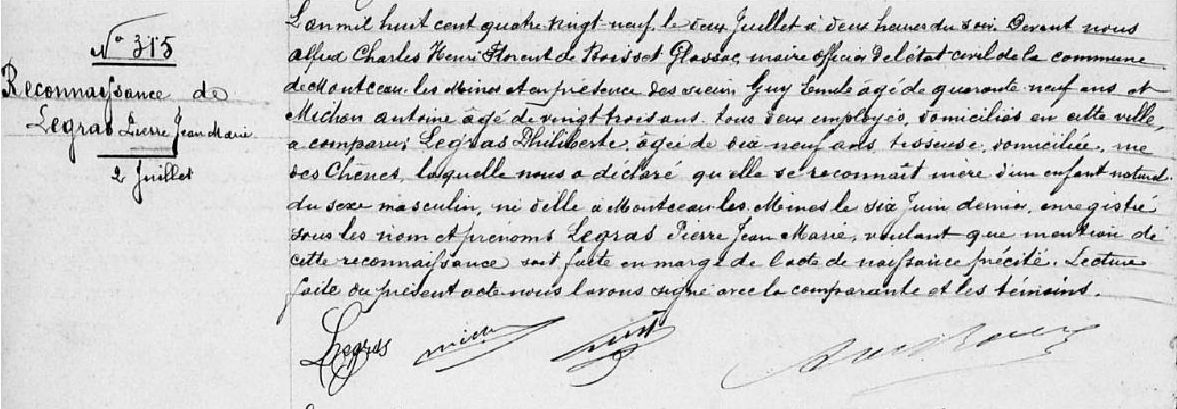 N° 315
Reconnaissance de
Legras Pierre Jean Marie
2 Juillet
L'an mil huit cent quatre vingt-neuf, le deux Juillet à deux heures du soir. Devant nous
Alfred Charles Henri Florent de Boisset Glassac, maire officier de l'état civil de la commune
de Montceau-les-Mines et en présence des sieurs Guy Emile âgé de quarante neuf ans et
Michon Antoine âgé de vingt trois ans, tous deux employés, domiciliés en cette ville,
a comparu: Legras Philiberte, âgée de dix neuf ans tisseuse, domiciliée, rue
des Chênes, laquelle nous a déclaré qu'elle se reconnaît mère d'un enfant naturel
du sexe masculin, né d'elle à Montceau-les-Mines le six Juin dernier, enregistré
sous les nom et prénoms Legras Pierre Jean Marie, voulant que mention de
cette reconnaissance soit faite en marge de l'acte de naissance précité. Lecture
faite du présent acte nous l'avons signé avec la comparante et les témoins.
Legras